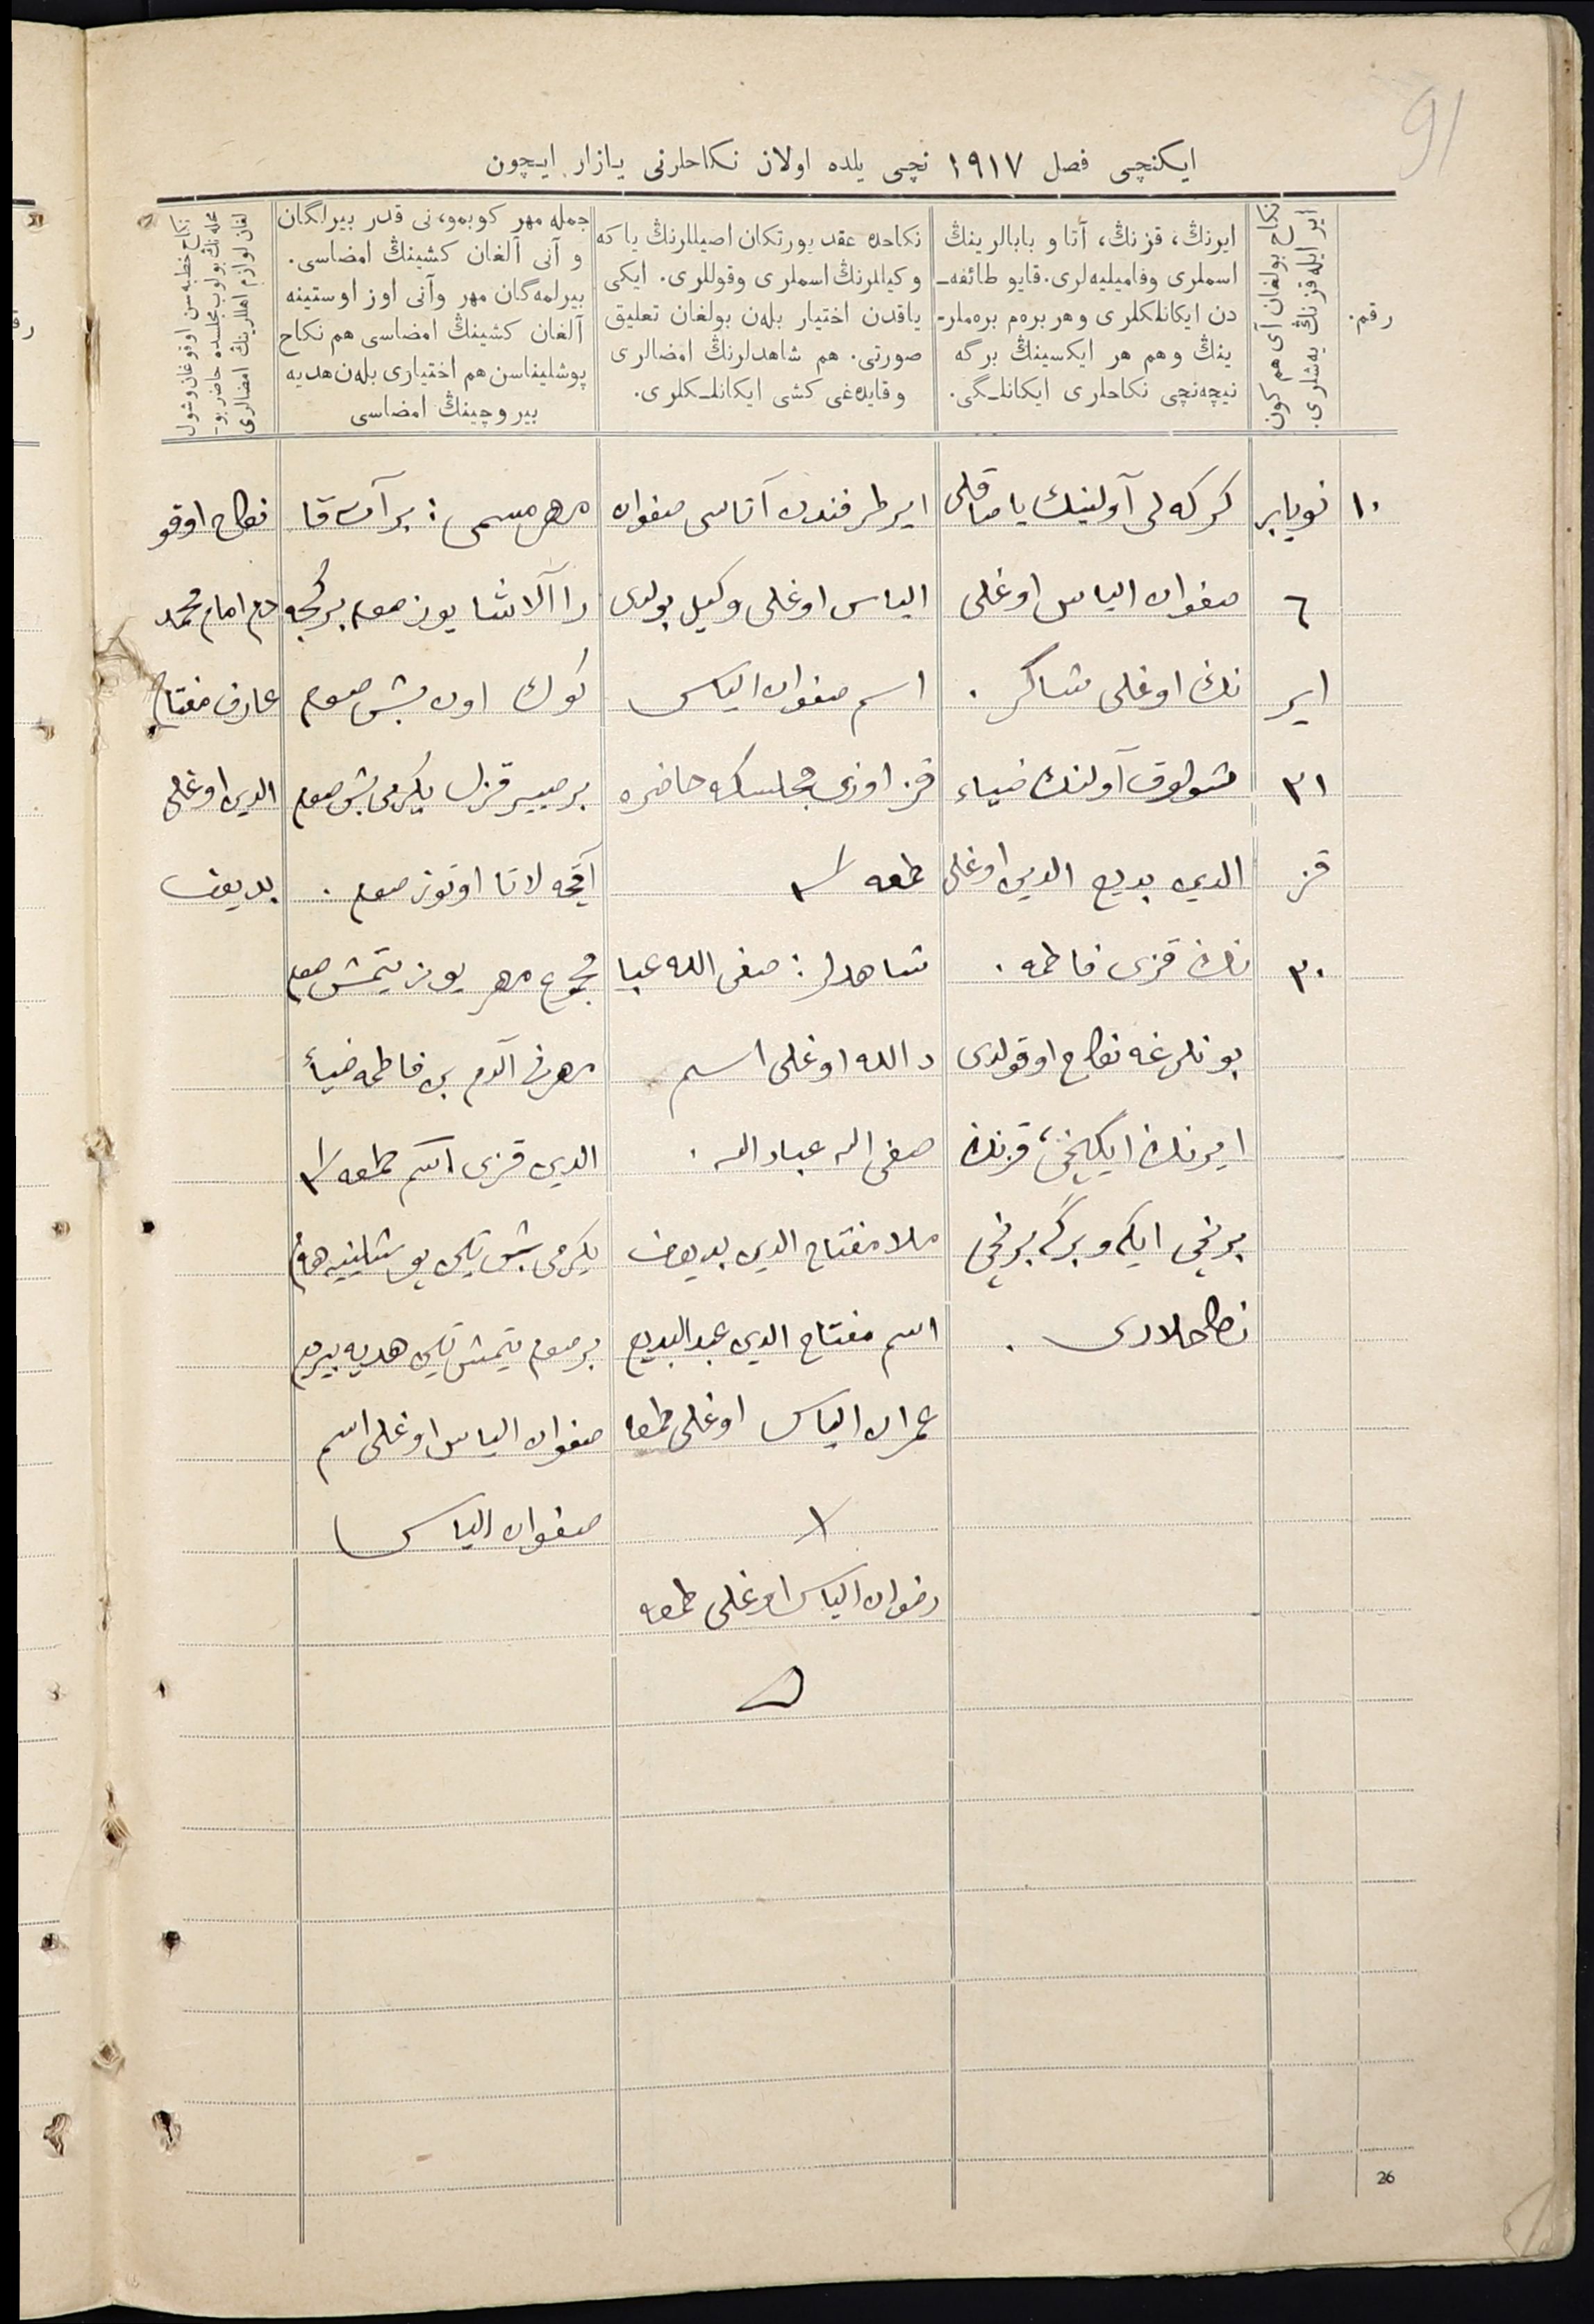 91
ایکنچی فصل ١٩١٧ نچی یلده اولان نکاحلرنی یازار ایچون
رقم.
نکاح بولغان آی هم کون
ایر ایله قزنڭ یه‌شلری.
ایرنڭ، قزنڭ، آتا و بابالرینڭ
اسملری وفامیلیه‌لری. قایو طائفه‌ـ
دن ایکانلکلری وهر بره‌م بره‌ملرـ
ینڭ وهم هر ایکسینڭ برگه
نیچه‌نچی نکاحلری ایکانلـگی.
نکاحده عقد یورتکان اصیللرنڭ یاکه
وکیللرنڭ اسملری وقوللری. ایکی
یاقدن اختیار بله‌ن بولغان تعلیق
صورتی. هم شاهدلرنڭ امضالری
وقایده‌غی کشی ایکانلـکلری.
جمله مهر کوبمو، نی قدر بیرلگان
و آنی آلغان کشینڭ امضاسی.
بیرلمه‌گان مهر وآنی اوز اوستینه
آلغان کشینڭ امضاسی هم نکاح
پوشلیناسن هم اختیاری بله‌ن هدیه
بیروچینڭ امضاسی
نکاح خطبه‌سن اوقوغان وشول
محله‌نڭ بولوب مجلسده حاضر بوـ
لغان لوازم اهللرینڭ امضالری
١٠
نویابر
٦
ایر
٣١
قز
٣٠
کرکه‌لی آولینڭ یاصاقلی
صفوان الیاس اوغلی
نڭ اوغلی شاکر .
آولنڭ ضیاء
الدین بدیع الدین اوغلی
نڭ قزی فاطمه .
بونلرغه نکاح اوقولدی
ایرنڭ ایکنچی، قزنڭ
برنچی ایکه و برگه برنچی
نکاحلاری .
ایر طرفندن آتاسی صفوان
الیاس اوغلی وکیل بولدی
اسم صفوان الیاس
قز اوزی مجلسده حاضره
طمعه
شاهدلر : صفی الله عبا
د الله اوغلی اسم
صفی الله عباد الله .
ملا مفتاح الدین بدیعوف
اسم مفتاح الدین عبدالبدیع
عمران الیاس اوغلی طمعا
رضوان الیاس اوغلی طمعه
مهر مسمی : بر آت قا
را آلاشا یوز صوم بر کجه
کوك اون بش صوم
بر صییر قزل یکرمی بش صوم
آقچه لاتا اوتوز صوم .
مجموع مهر یوز یتمش صوم
مهرنی آلدم بن فاطمه ضیأ
الدین قزی اسم طمعه
یکرمی بش تین پوشلینه هم
بر صوم یتمش تین هدیه بیردم
صفوان الیاس اوغلی اسم
صفوان الیاس
نکاح اوقو
دم امام محمد
عارف مفتاح
الدین اوغلی
بدیعوف
26